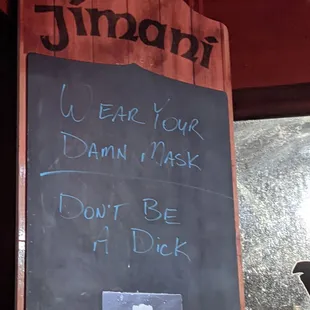 Jimani
WEAR YOUR
DAMN MASK
DON'T BE
A DICK